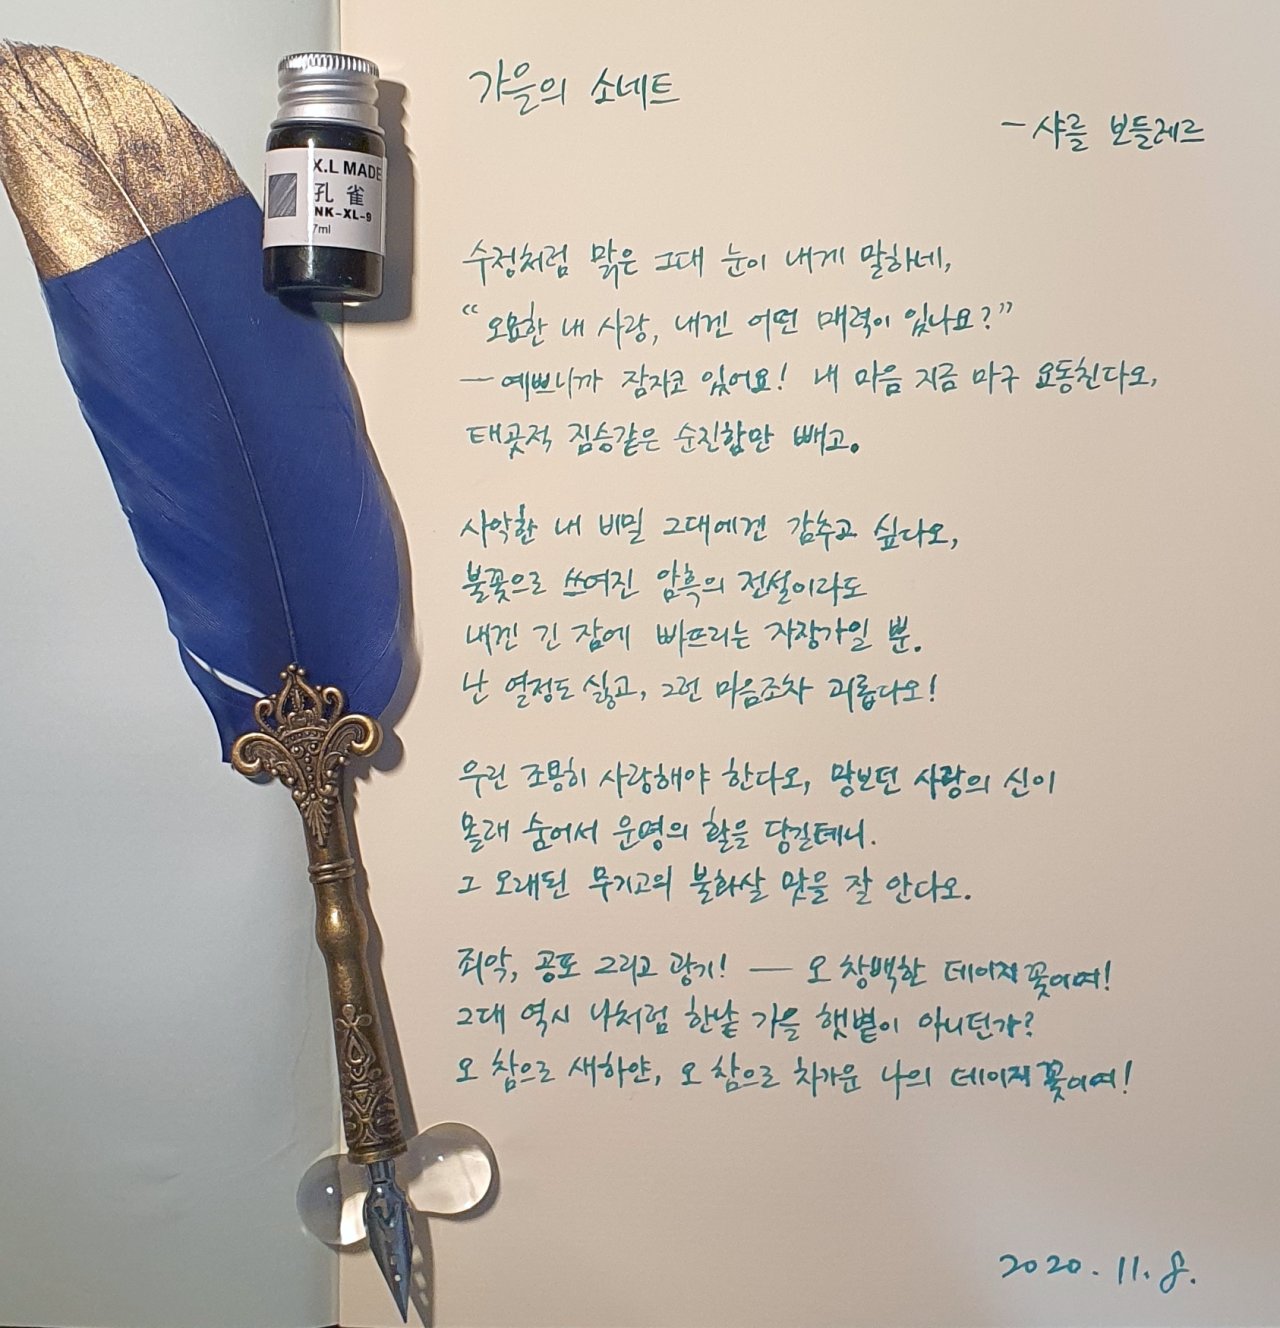 가을의 소네트
- 샤를 보들레르
X.L MADE
孔雀
INK-XL-9
7ml
수정처럼 맑은 그대 눈이 내게 말하네,
“오묘한 내 사랑, 내겐 어떤 매력이 있나요?”
— 예쁘니까 잠자코 있어요! 내 마음 지금 마구 요동친다오,
태곳적 짐승같은 순진함만 빼고.
사악한 내 비밀 그대에겐 감추고 싶다오,
불꽃으로 쓰여진 암흑의 전설이라도
내겐 긴 잠에 빠뜨리는 자장가일 뿐.
난 열정도 싫고, 그런 마음조차 괴롭다오!
우린 조용히 사랑해야 한다오, 망보던 사랑의 신이
몰래 숨어서 운명의 활을 당길테니.
그 오래된 무기고의 불화살 맛을 잘 안다오.
죄악, 공포 그리고 광기! — 오 창백한 데이지꽃이여!
그대 역시 나처럼 한낱 가을 햇볕이 아니던가?
오 참으로 새하얀, 오 참으로 차가운 나의 데이지꽃이여!
2020. 11. 8.